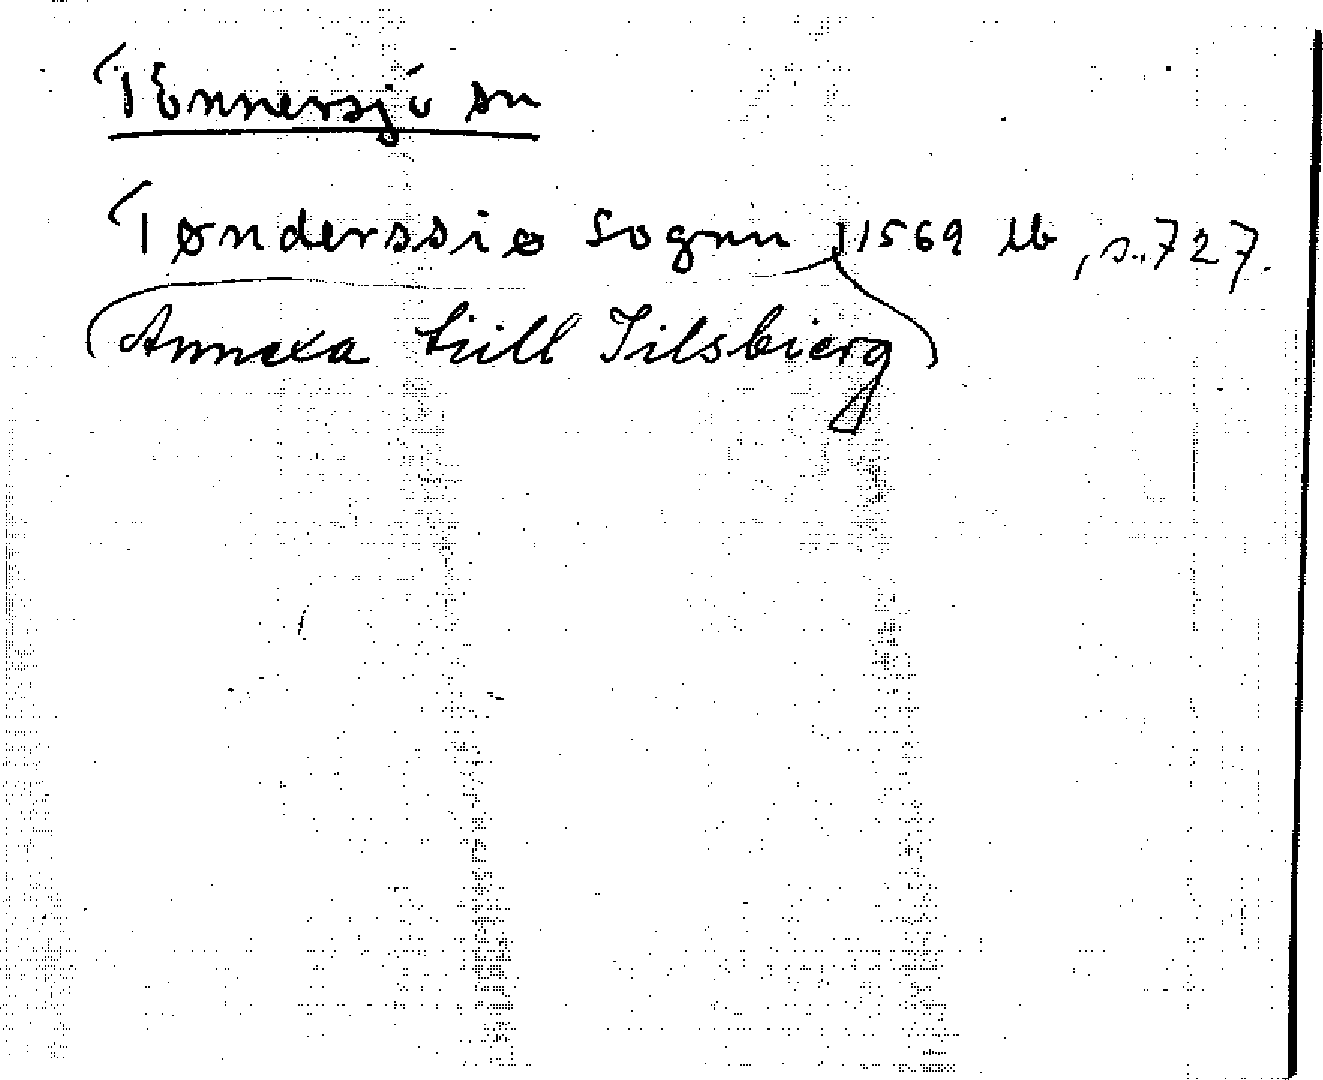 Tönnersjö sn
Tønderssiø Sognn 1569 lb, s. 727.
(Annexa till Jilsbierg)